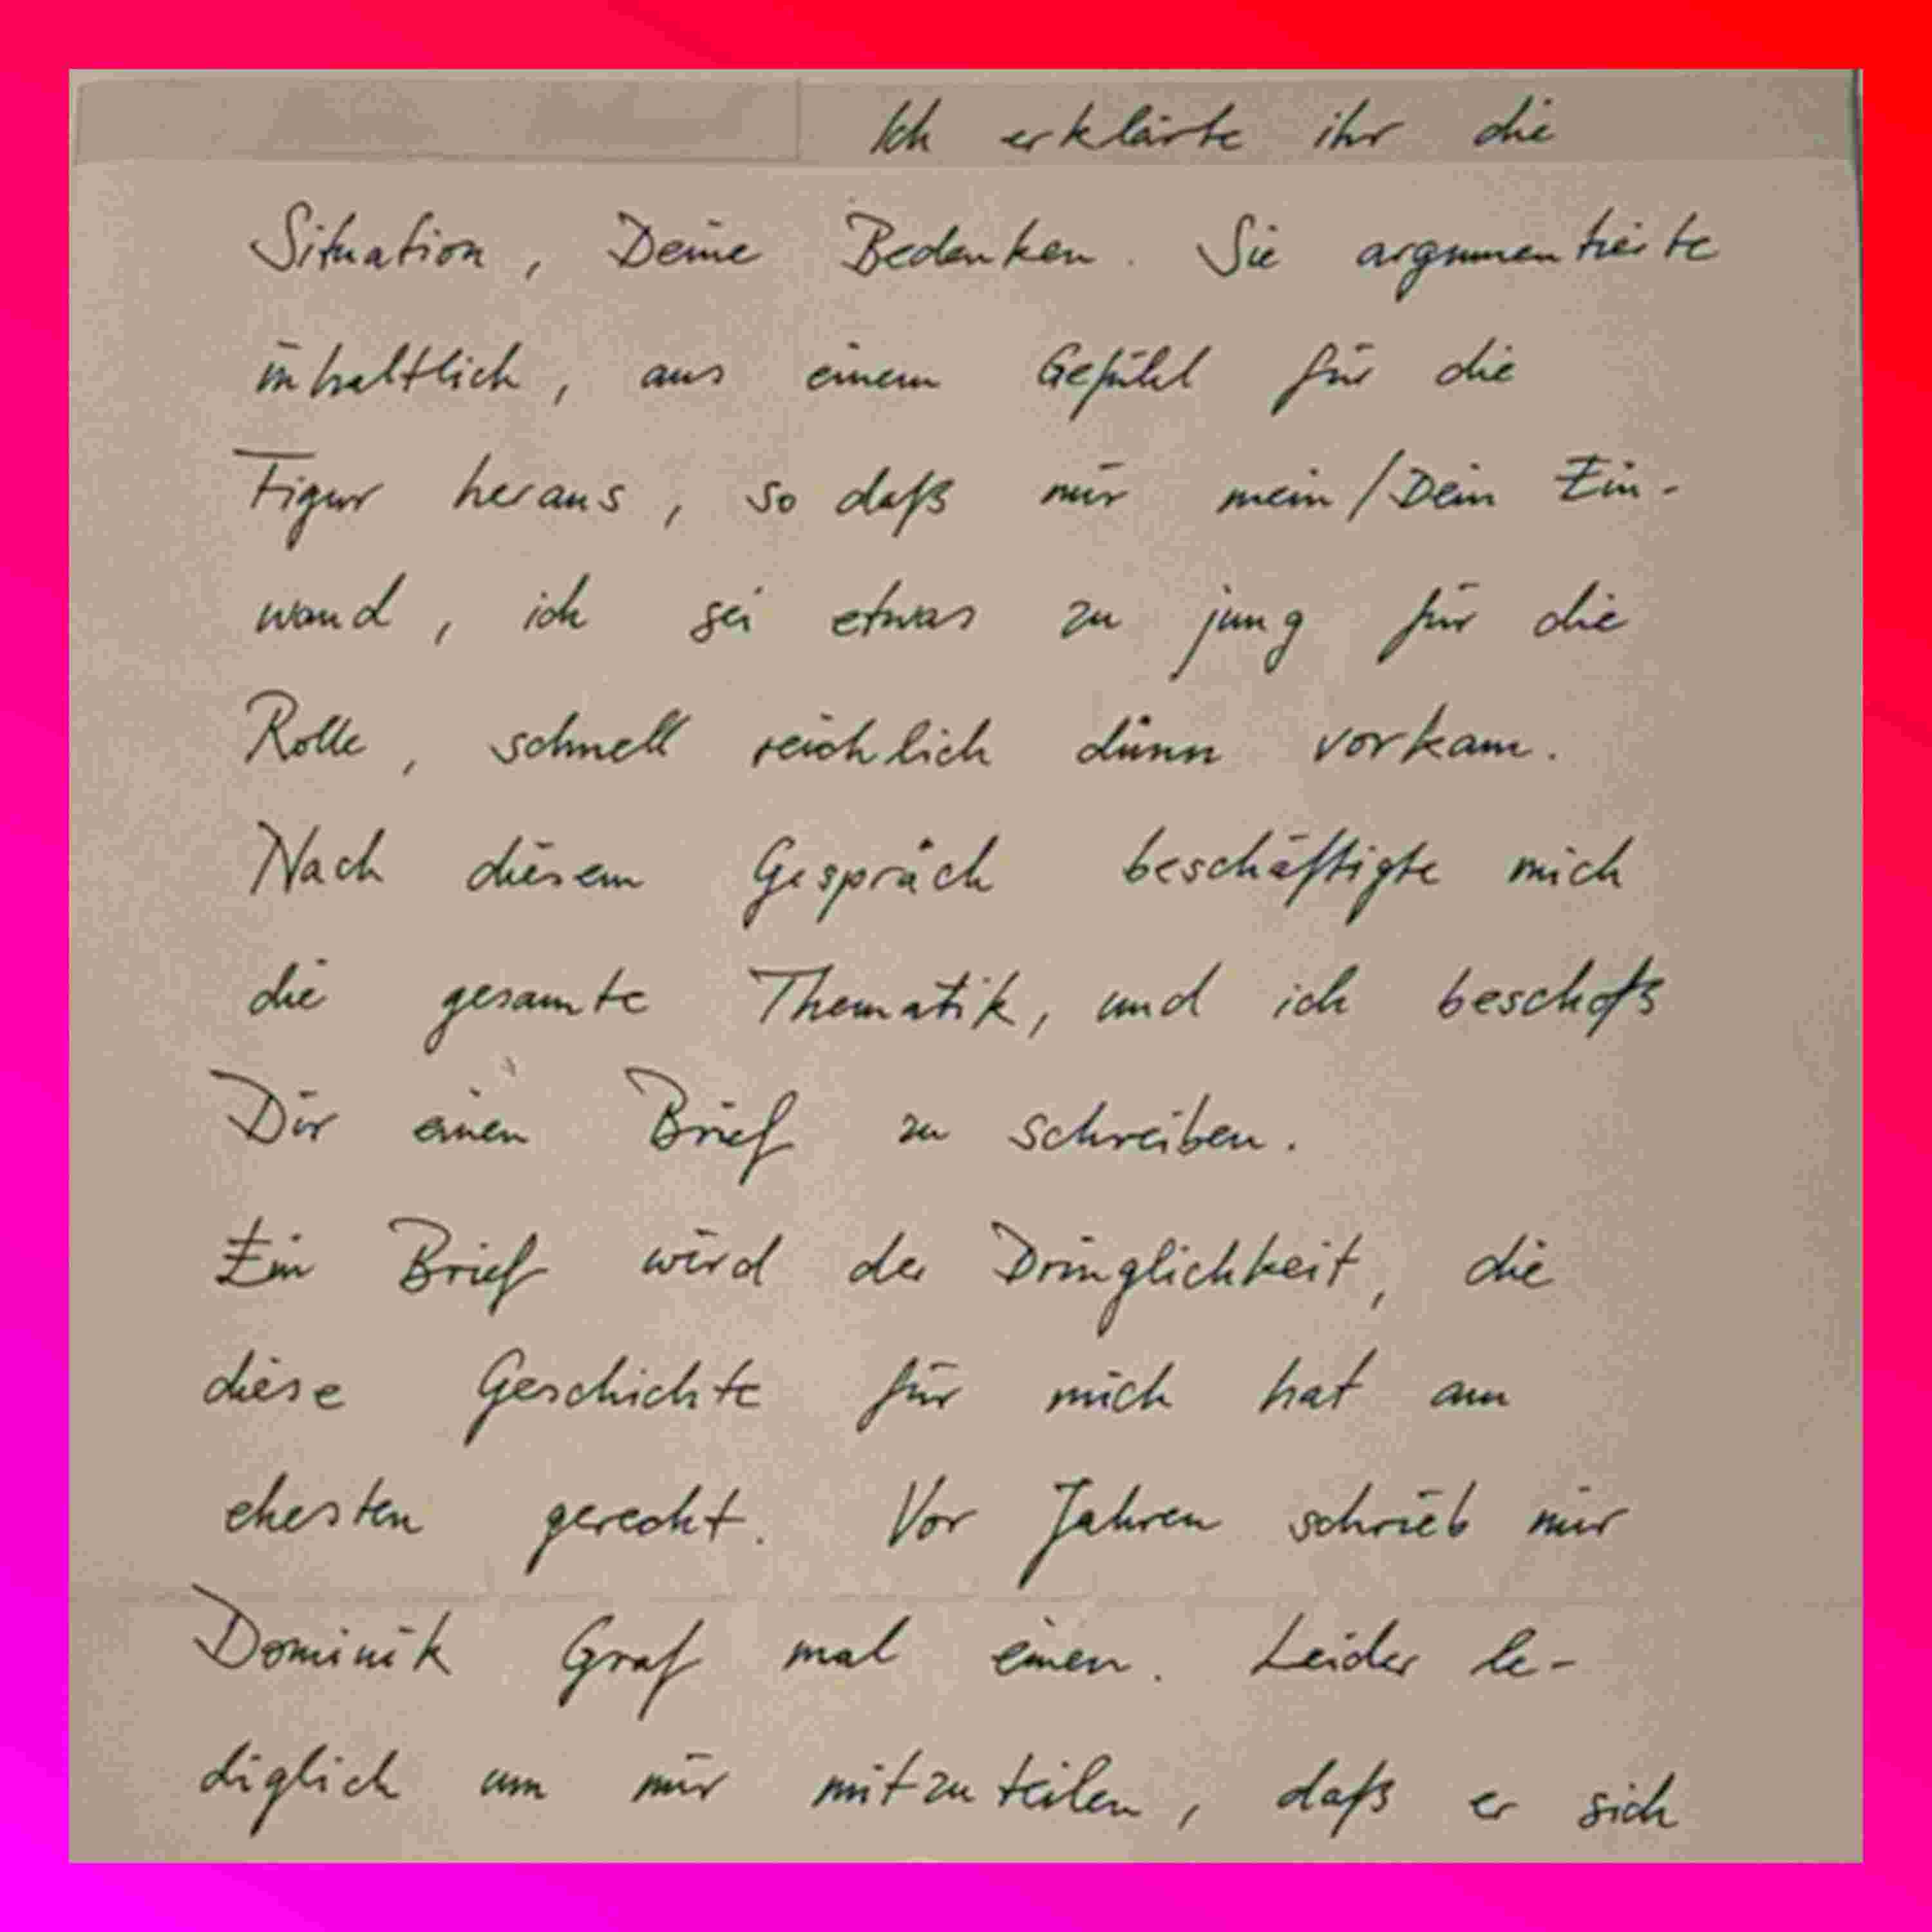 Ich erklärte ihr die
Situation, Deine Bedenken. Sie argumentierte
inhaltlich, aus einem Gefühl für die
Figur heraus, so daß mir mein/Dein Ein-
wand, ich sei etwas zu jung für die
Rolle, schnell reichlich dünn vorkam.
Nach diesem Gespräch beschäftigte mich
die gesamte Thematik, und ich beschoß
Dir einen Brief zu schreiben.
Ein Brief wird der Dringlichkeit, die
diese Geschichte für mich hat am
ehesten gerecht. Vor Jahren schrieb mir
Dominik Graf mal einen. Leider le-
diglich um mir mitzuteilen, daß er sich